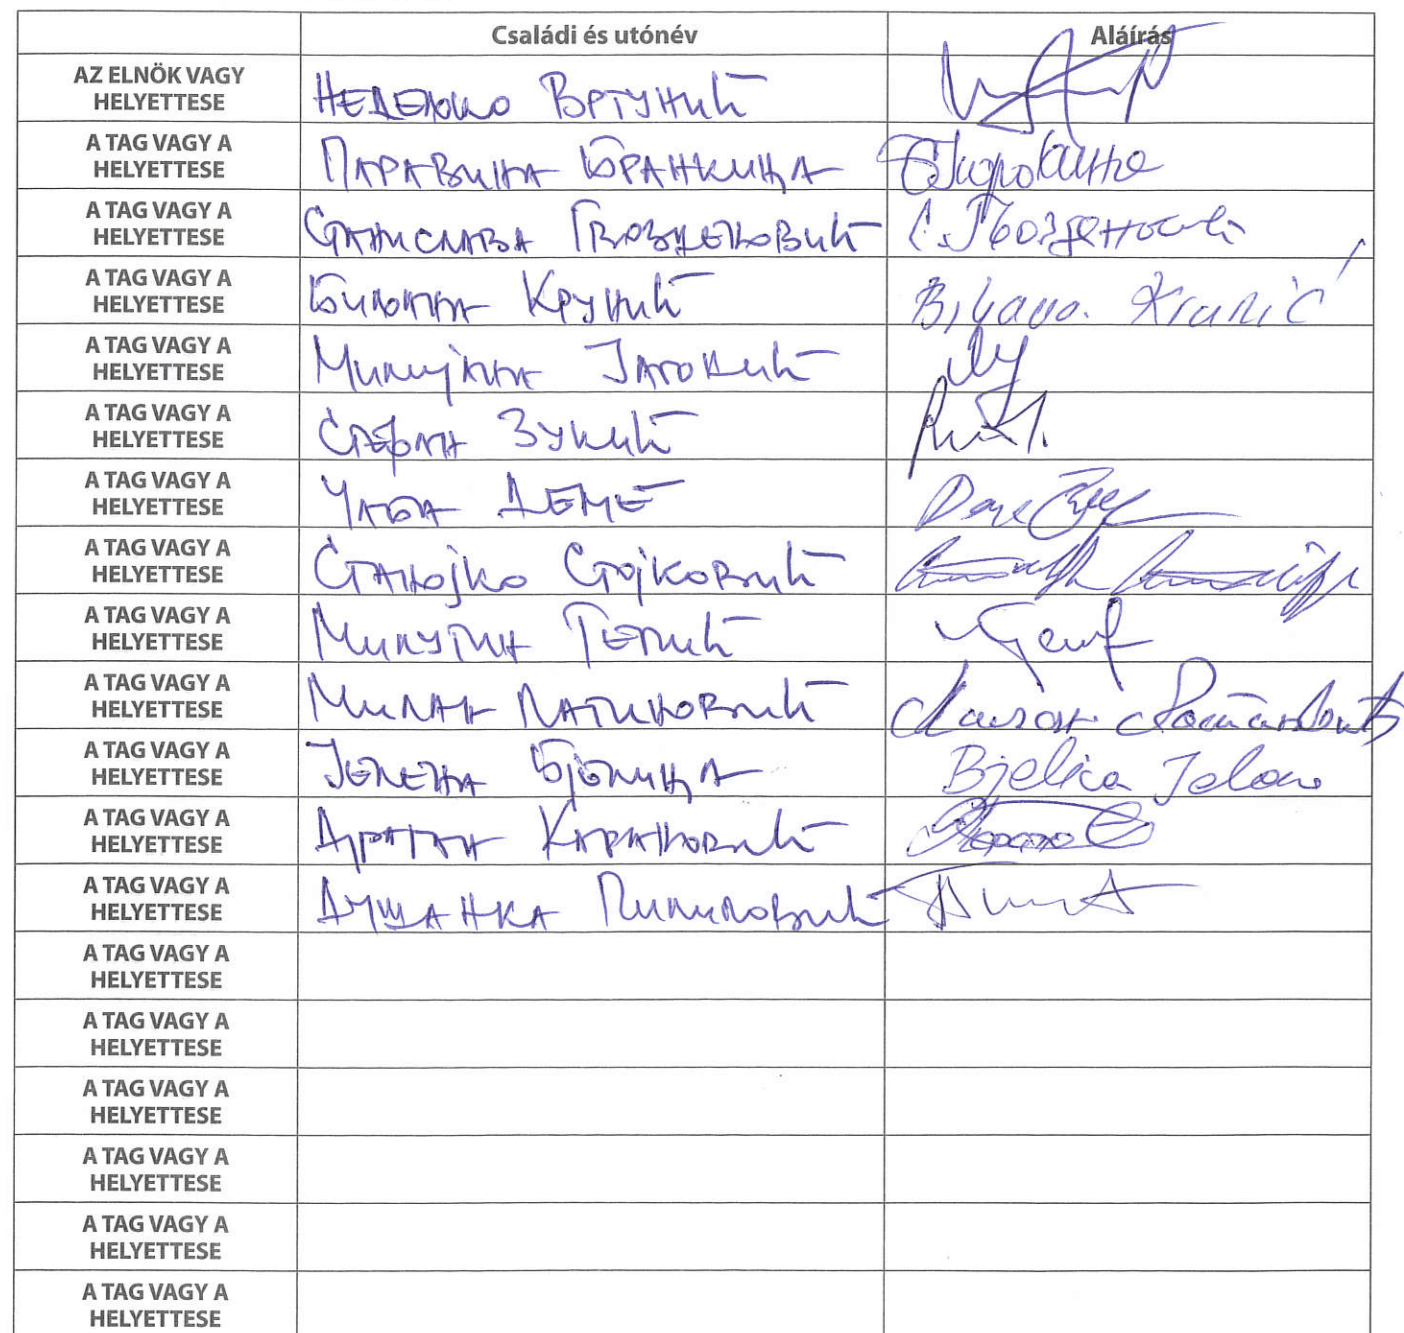 Családi és utónév Aláírás
AZ ELNÖK VAGY
HELYETTESE
Недељко Вртунић
A TAG VAGY A
HELYETTESE
Паравиња Бранкица
A TAG VAGY A
HELYETTESE
Станислава Гвозденовић
A TAG VAGY A
HELYETTESE
Биљана Крунић Biljana Krunić
A TAG VAGY A
HELYETTESE
Милијана
A TAG VAGY A
HELYETTESE
Стефан Зукић
A TAG VAGY A
HELYETTESE
Чаба Деме
A TAG VAGY A
HELYETTESE
Станојко Стојковић
A TAG VAGY A
HELYETTESE
Милутин Тепић
A TAG VAGY A
HELYETTESE
Милан Латиновић
A TAG VAGY A
HELYETTESE
Јелена Бјелица Bjelica Jelena
A TAG VAGY A
HELYETTESE
Драган Карановић
A TAG VAGY A
HELYETTESE
Душанка Пилиповић
A TAG VAGY A
HELYETTESE
A TAG VAGY A
HELYETTESE
A TAG VAGY A
HELYETTESE
A TAG VAGY A
HELYETTESE
A TAG VAGY A
HELYETTESE
A TAG VAGY A
HELYETTESE